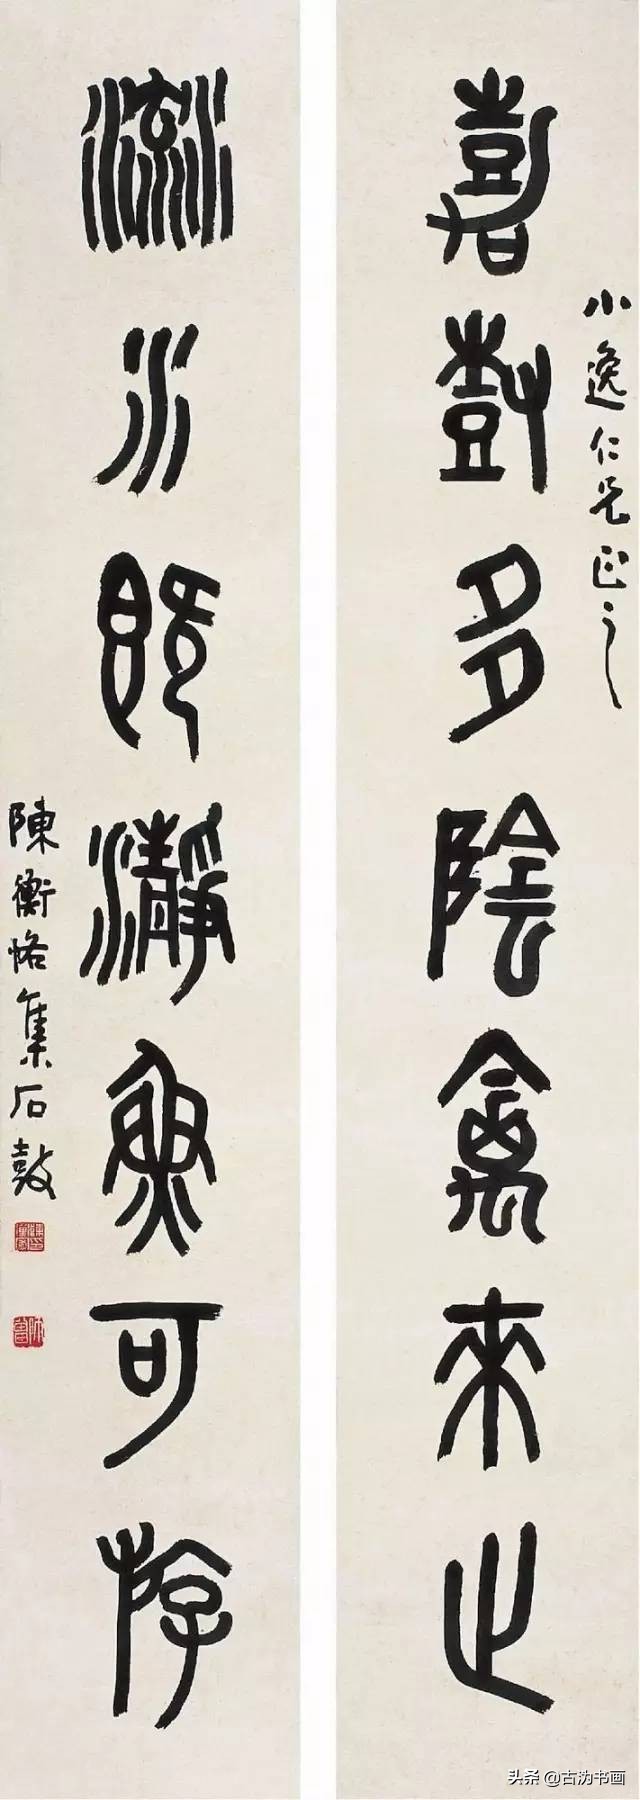 嘉樹多陰禽來止
小逸仁兄正之
流水既瀞魚可斿
陳衡恪集石鼓
師曾
头条 @古沩书画